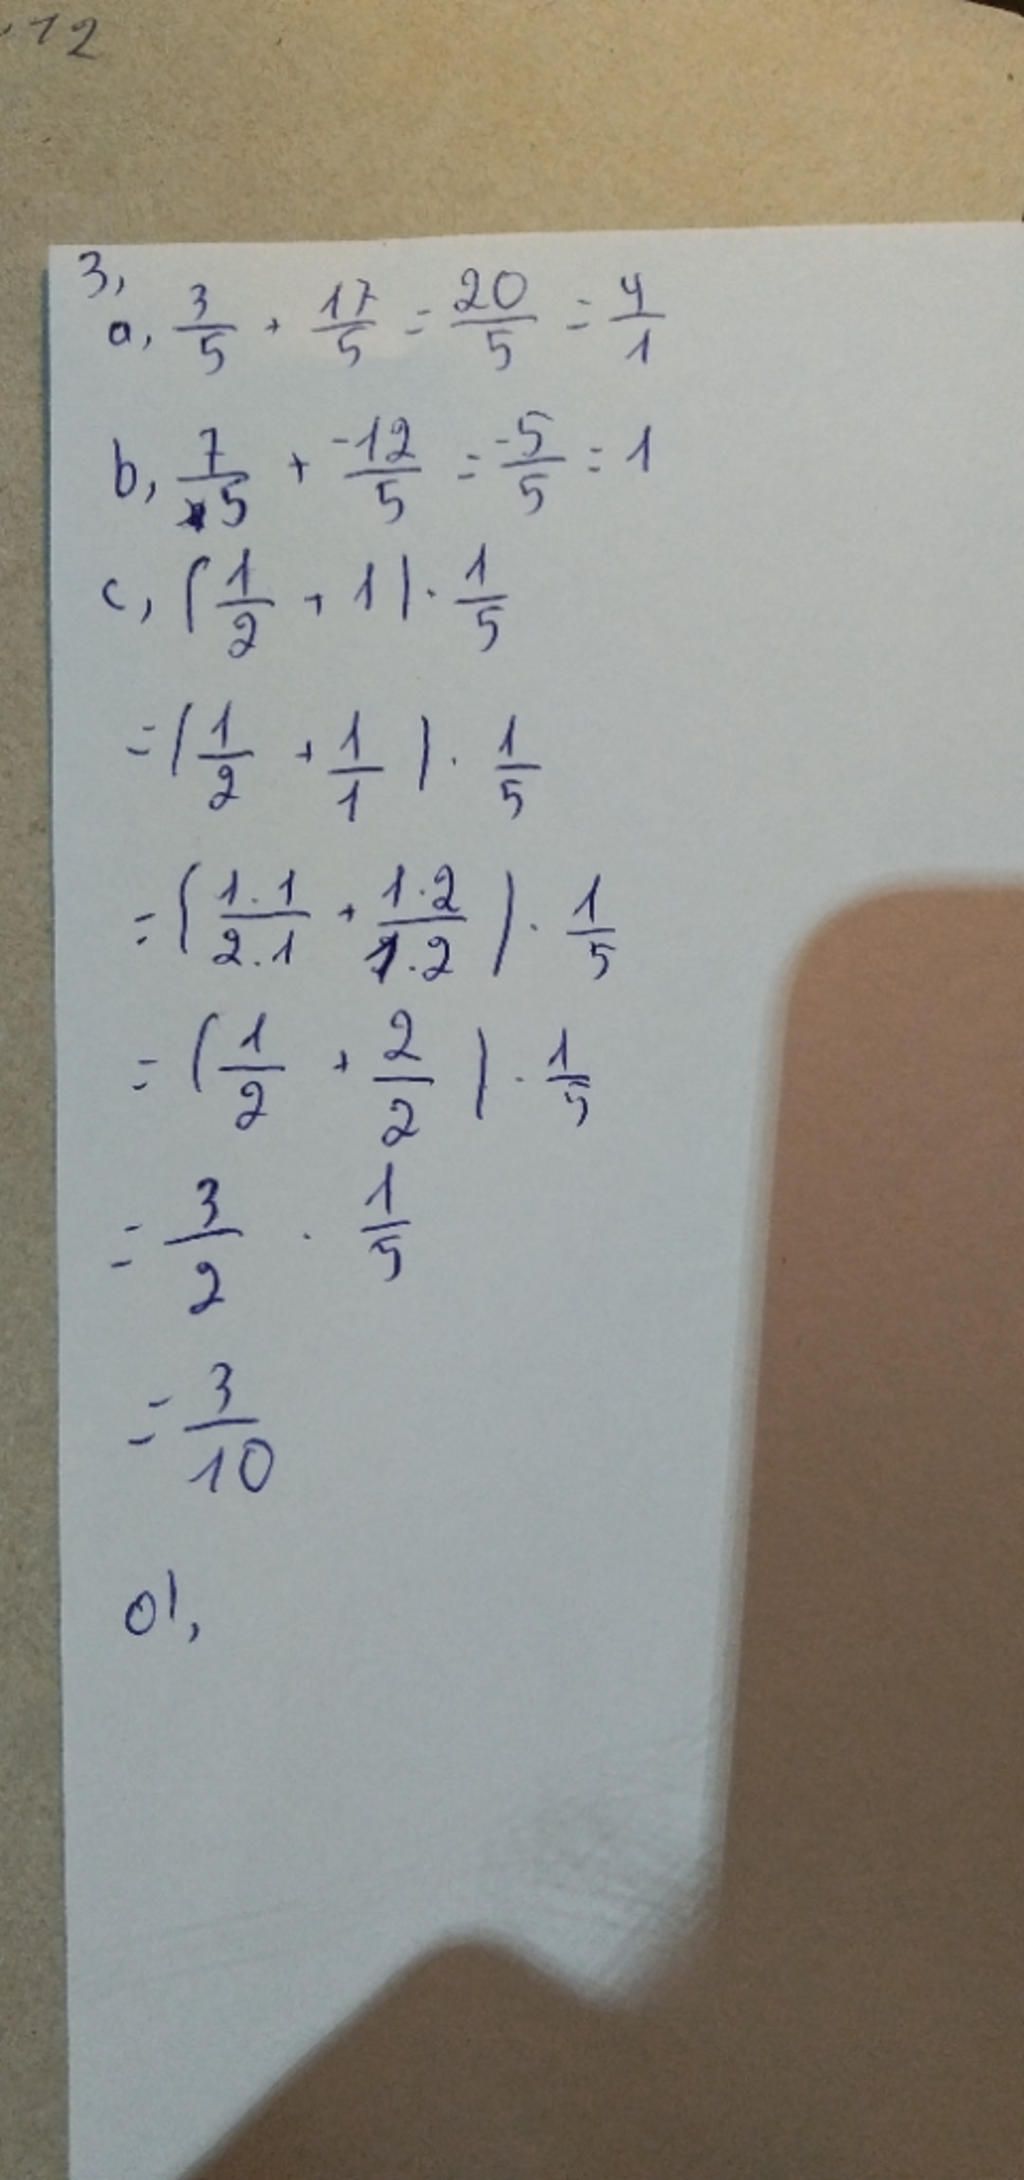 12
3,
a, 3/5 + 17/5 = 20/5 = 4/1
b, 7/5 + -12/5 = -5/5 = 1
c, (1/2 + 1) . 1/5
= (1/2 + 1/1) . 1/5
= (1.1/2.1 + 1.2/1.2) . 1/5
= (1/2 + 2/2) . 1/5
= 3/2 . 1/5
= 3/10
d,